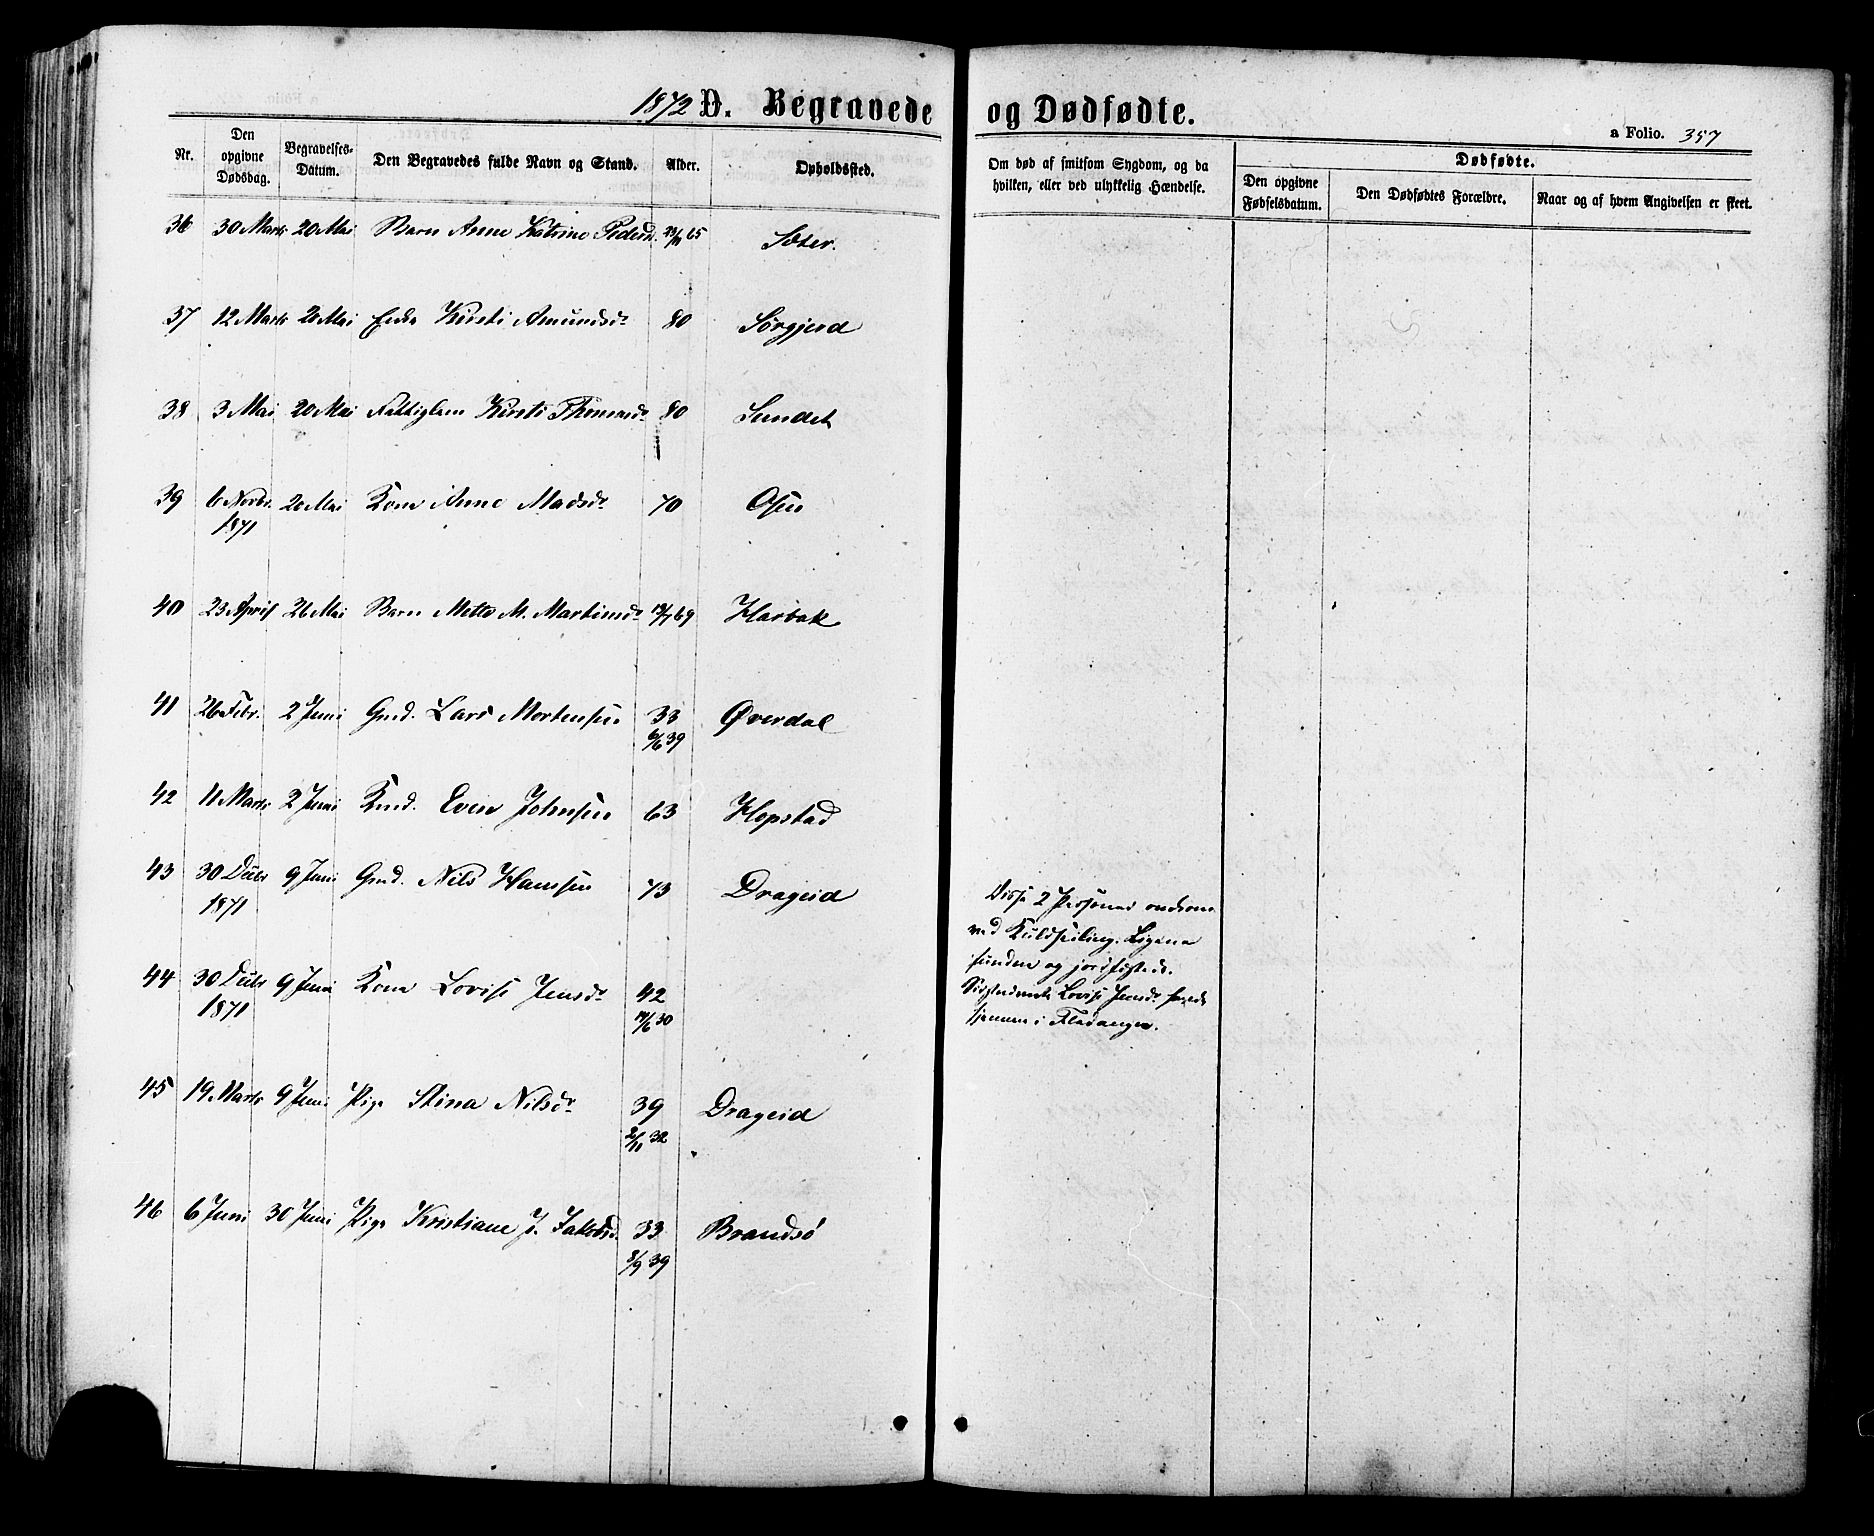 1872 D. Begravede og Dødfødte.
a Folio. 357
Nr. Den opgivne Dødsdag. Begravelses-Datum. Den Begravedes fulde Navn og Stand. Alder. Opholdssted. Om død af smitsom Sygdom, og da hvilken, eller ved ulykkelig Hændelse. Dødfødte. Den opgivne Fødselsdatum. Den Dødfødtes Forældre. Naar og af hvem Angivelsen er skeet.
36 30 Marts 20 Mai Barn Anne Katrine Pedersd. 65 Sæter.
37 12 Marts 20 Mai Enke Kirsti Amundsdr 80 Sørgjerd
38 3 Mai 20 Mai Fattiglem Kirsti Thomasdr 80 Sundet
39 6 Novbr. 20 Mai Kone Anne Madsdr 70 Osen
1871
40 23 April 26 Mai Barn Meta M. Martinsdr 13/7 69 Harbak
41 26 Febr. 2 Juni Gmd. Lars Mortensen 33 Øverdal
6/6 39
42 11 Marts 2 Juni Kmd. Even Johnsen 63 Hopstad
43 30 Decbr 9 Juni Gmd. Nils Hansen 73 Drageid
1871
Disse 2 Personer omkom
ved Kuldseiling. Ligene
fundne og jordfæstede.
44 30 Decbr 9 Juni Kone Lovise Jensdr 42
1871 30
Sidstnævnte Lovise Jensdr havde
hjemme i Fladanger.
45 19 Marts 9 Juni Pige Stina Nilsdr 39 Drageid
2/11 32
46 6 Juni 30 Juni Pige Kristiane J. Jakobsd. 33 Brandsø
8/9 39